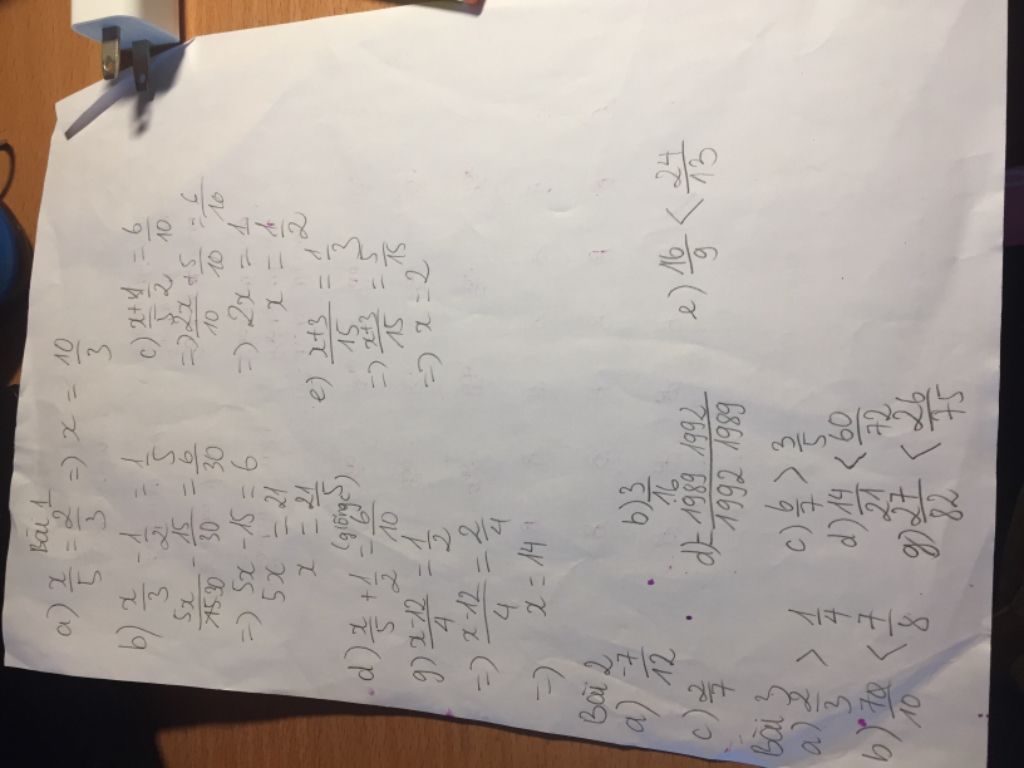 Bài 1
a) x/5 = 2/3 => x = 10/3
b) x/3 - 1/2 = 1/5
5x/30 - 15/30 = 6/30
=> 5x - 15 = 6
5x = 21
x = 21/5
c) x+1/5 = 6/10
=> 2x/10 + 5/10 = 6/10
=> 2x = 1
x = 1/2
d) x/5 + 1/2 = 6/10 (giống c)
e) x+3/15 = 1/3
=> x+3/15 = 5/15
=> x = 2
g) x-12/4 = 1/2
=> x-12/4 = 2/4
=> x = 14
Bài 2
a) -7/12
b) 3/16
c) 2/7
d) -1989 1992/1992 1989
Bài 3
a) 2/3 > 1/4
b) 7/10 < 7/8
c) 6/7 > 3/5
d) 14/21 < 60/72
e) 16/9 < 24/13
g) 27/82 < 26/75